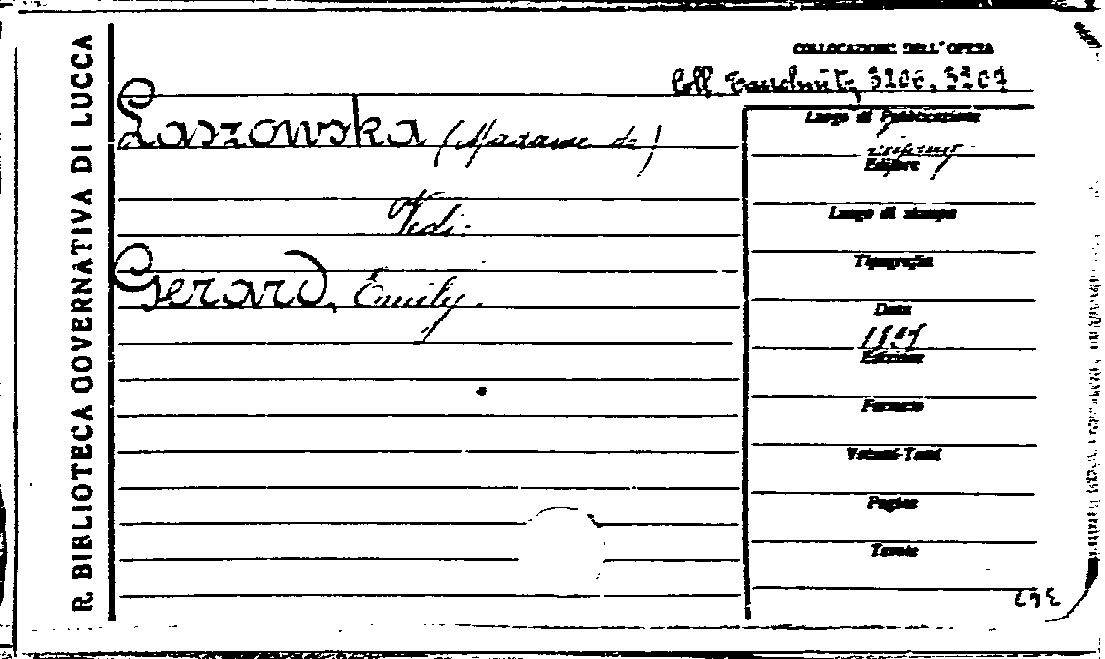 R. BIBLIOTECA GOVERNATIVA DI LUCCA
COLLOCAZIONE DELL'OPERA
Coll. Tauchnitz, 3206, 3207
Laszowska (Madame de)
Vedi:
Gerard, Emily.
Luogo di Pubblicazione
Editore
Luogo di stampa
Tipografia
Data
Edizione
Formato
Volumi-Tomi
Pagine
Tavole